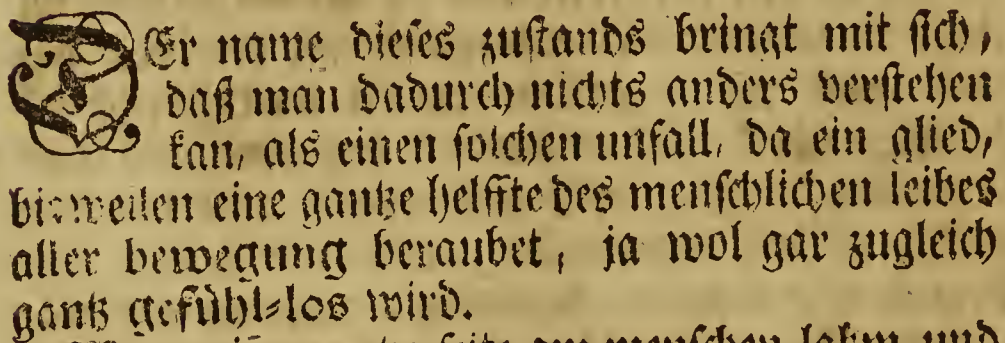 DEr name dieses zustands bringt mit sich,
daß man dadurch nichts anders verstehen
kan, als einen solchen unfall, da ein glied,
bisweilen eine gantze helffte des menschlichen leibes
aller bewegung beraubet, ja wol gar zugleich
gantz gefühl-los wird.
seite am menschen lahm und